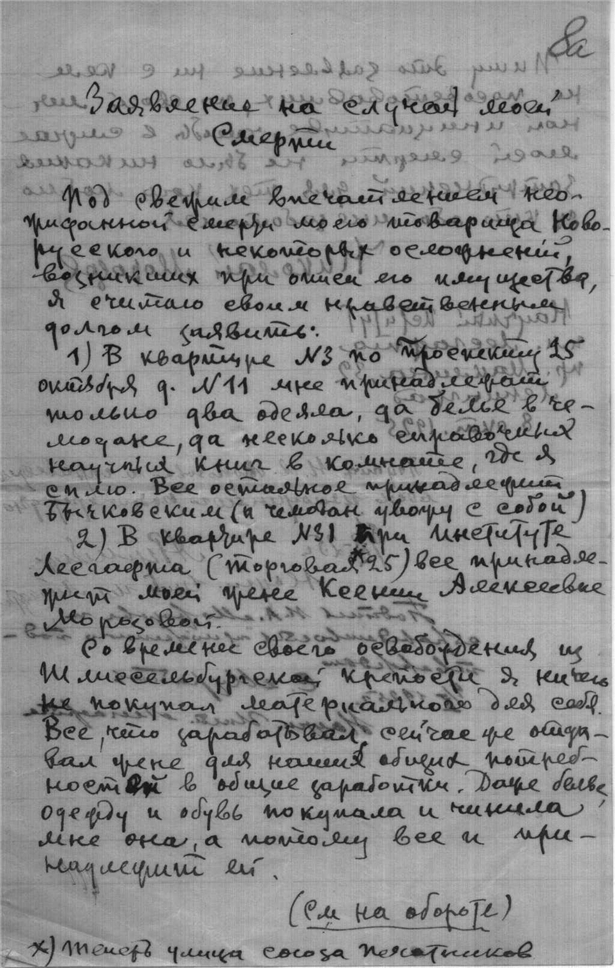 8а
Заявление на случай моей
Смерти
Под свежим впечатлением нео-
жиданной смерти моего товарища Ново-
русского и некоторых осложнений,
возникших при описи его имущества,
я считаю своим нравственным
долгом заявить:
1) В квартире №3 по проспекту 25
октября д. №11 мне принадлежат
только два одеяла, да белье в че-
модане, да несколько справочных
научных книг в комнате, где я
сплю. Все остальное принадлежит
Бычковским (и чемодан увожу с собой)
2) В квартире №31 при Институте
Лесгафта (торговая x 25) все принадле-
жит моей жене Ксении Алексеевне
Морозовой.
Со времени своего освобождения из
Шлиссельбургской крепости я ничего
не покупал материального для себя.
Все, что зарабатывал, сейчас же отда-
вал жене для наших общих потреб-
ностей в общие заработки. Даже белье,
одежду и обувь покупала и чинила
мне она, а потому все и при-
надлежит ей.
(См на обороте)
x) теперь улица союза печатников